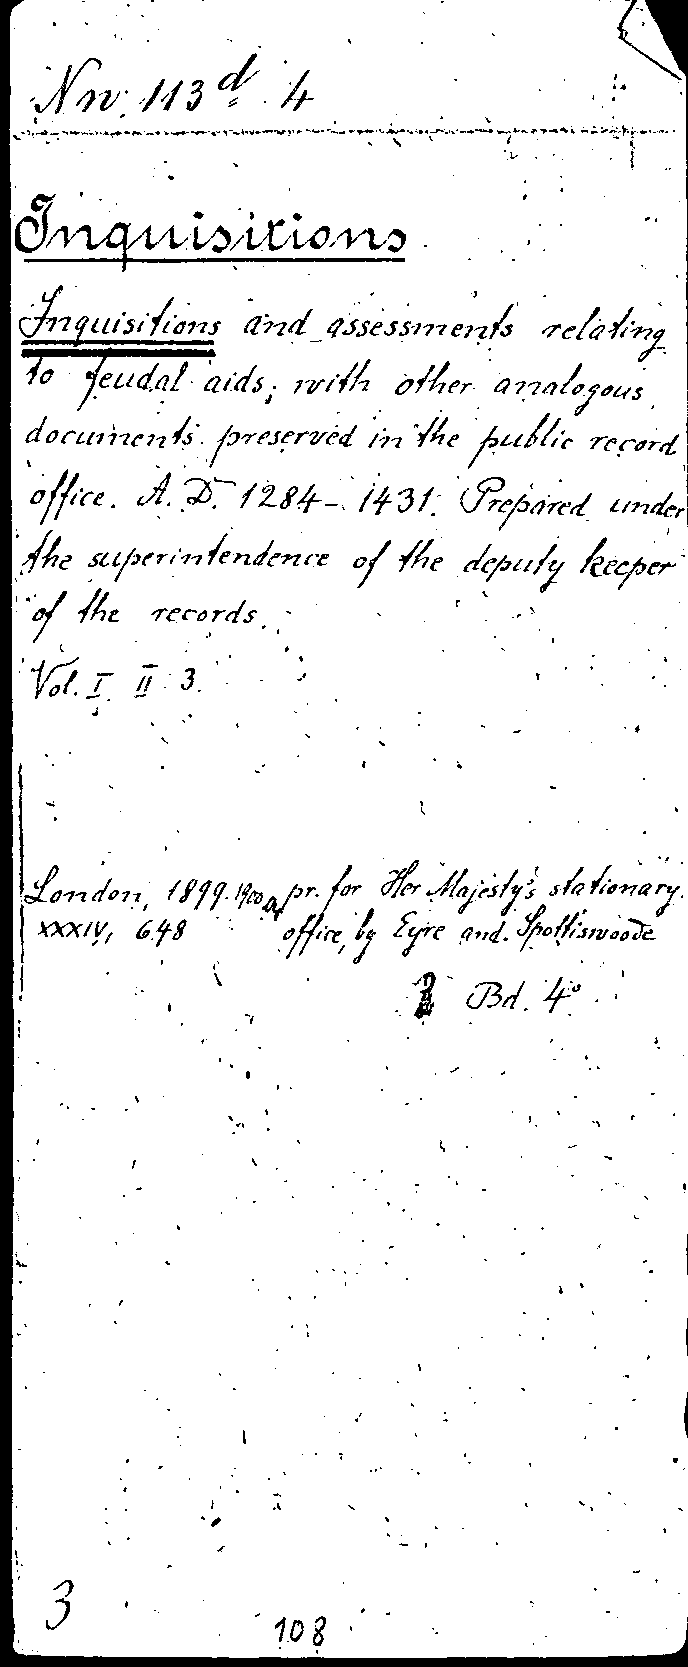 Nw. 113 d 4
Inquisitions
Inquisitions and assessments relating
to feudal aids; with other analogous
documents preserved in the public record
office. A. D. 1284-1431. Prepared under
the superintendence of the deputy keeper
of the records.
Vol. I II 3.
London, 1899. 1900 pr. for Her Majesty's stationary
XXXIV, 648 office, by Eyre and Spottiswoode
Bd. 4°
3
108